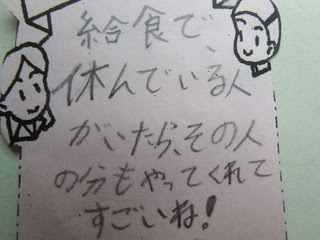 給食で、
休んでいる人
がいたら、その人
の分もやってくれて
すごいね!